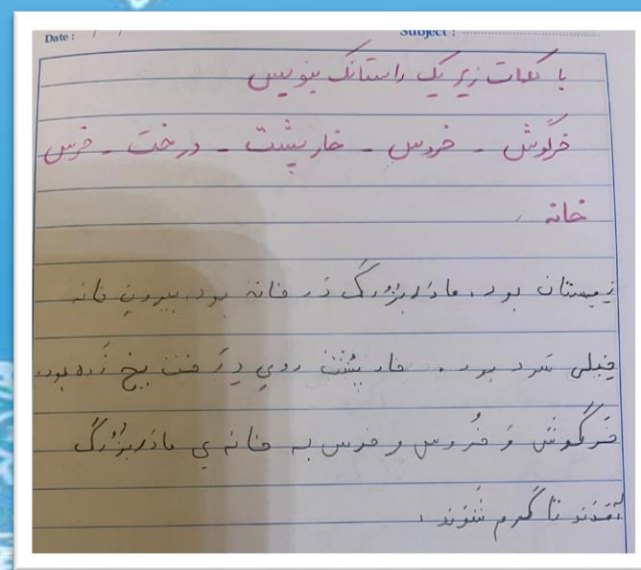 Date : / / Subject :
با کلمات زیر یک داستانک بنویس
خرگوش - خروس - خارپشت - درخت - خرس
خانه
زمستان بود. مادربزرگ در خانه بود. بیرون خانه
خیلی سرد بود. خارپشت روی درخت یخ زده بود.
خرگوش و خروس و خرس به خانه ی مادربزرگ
آمدند تا گرم شوند.